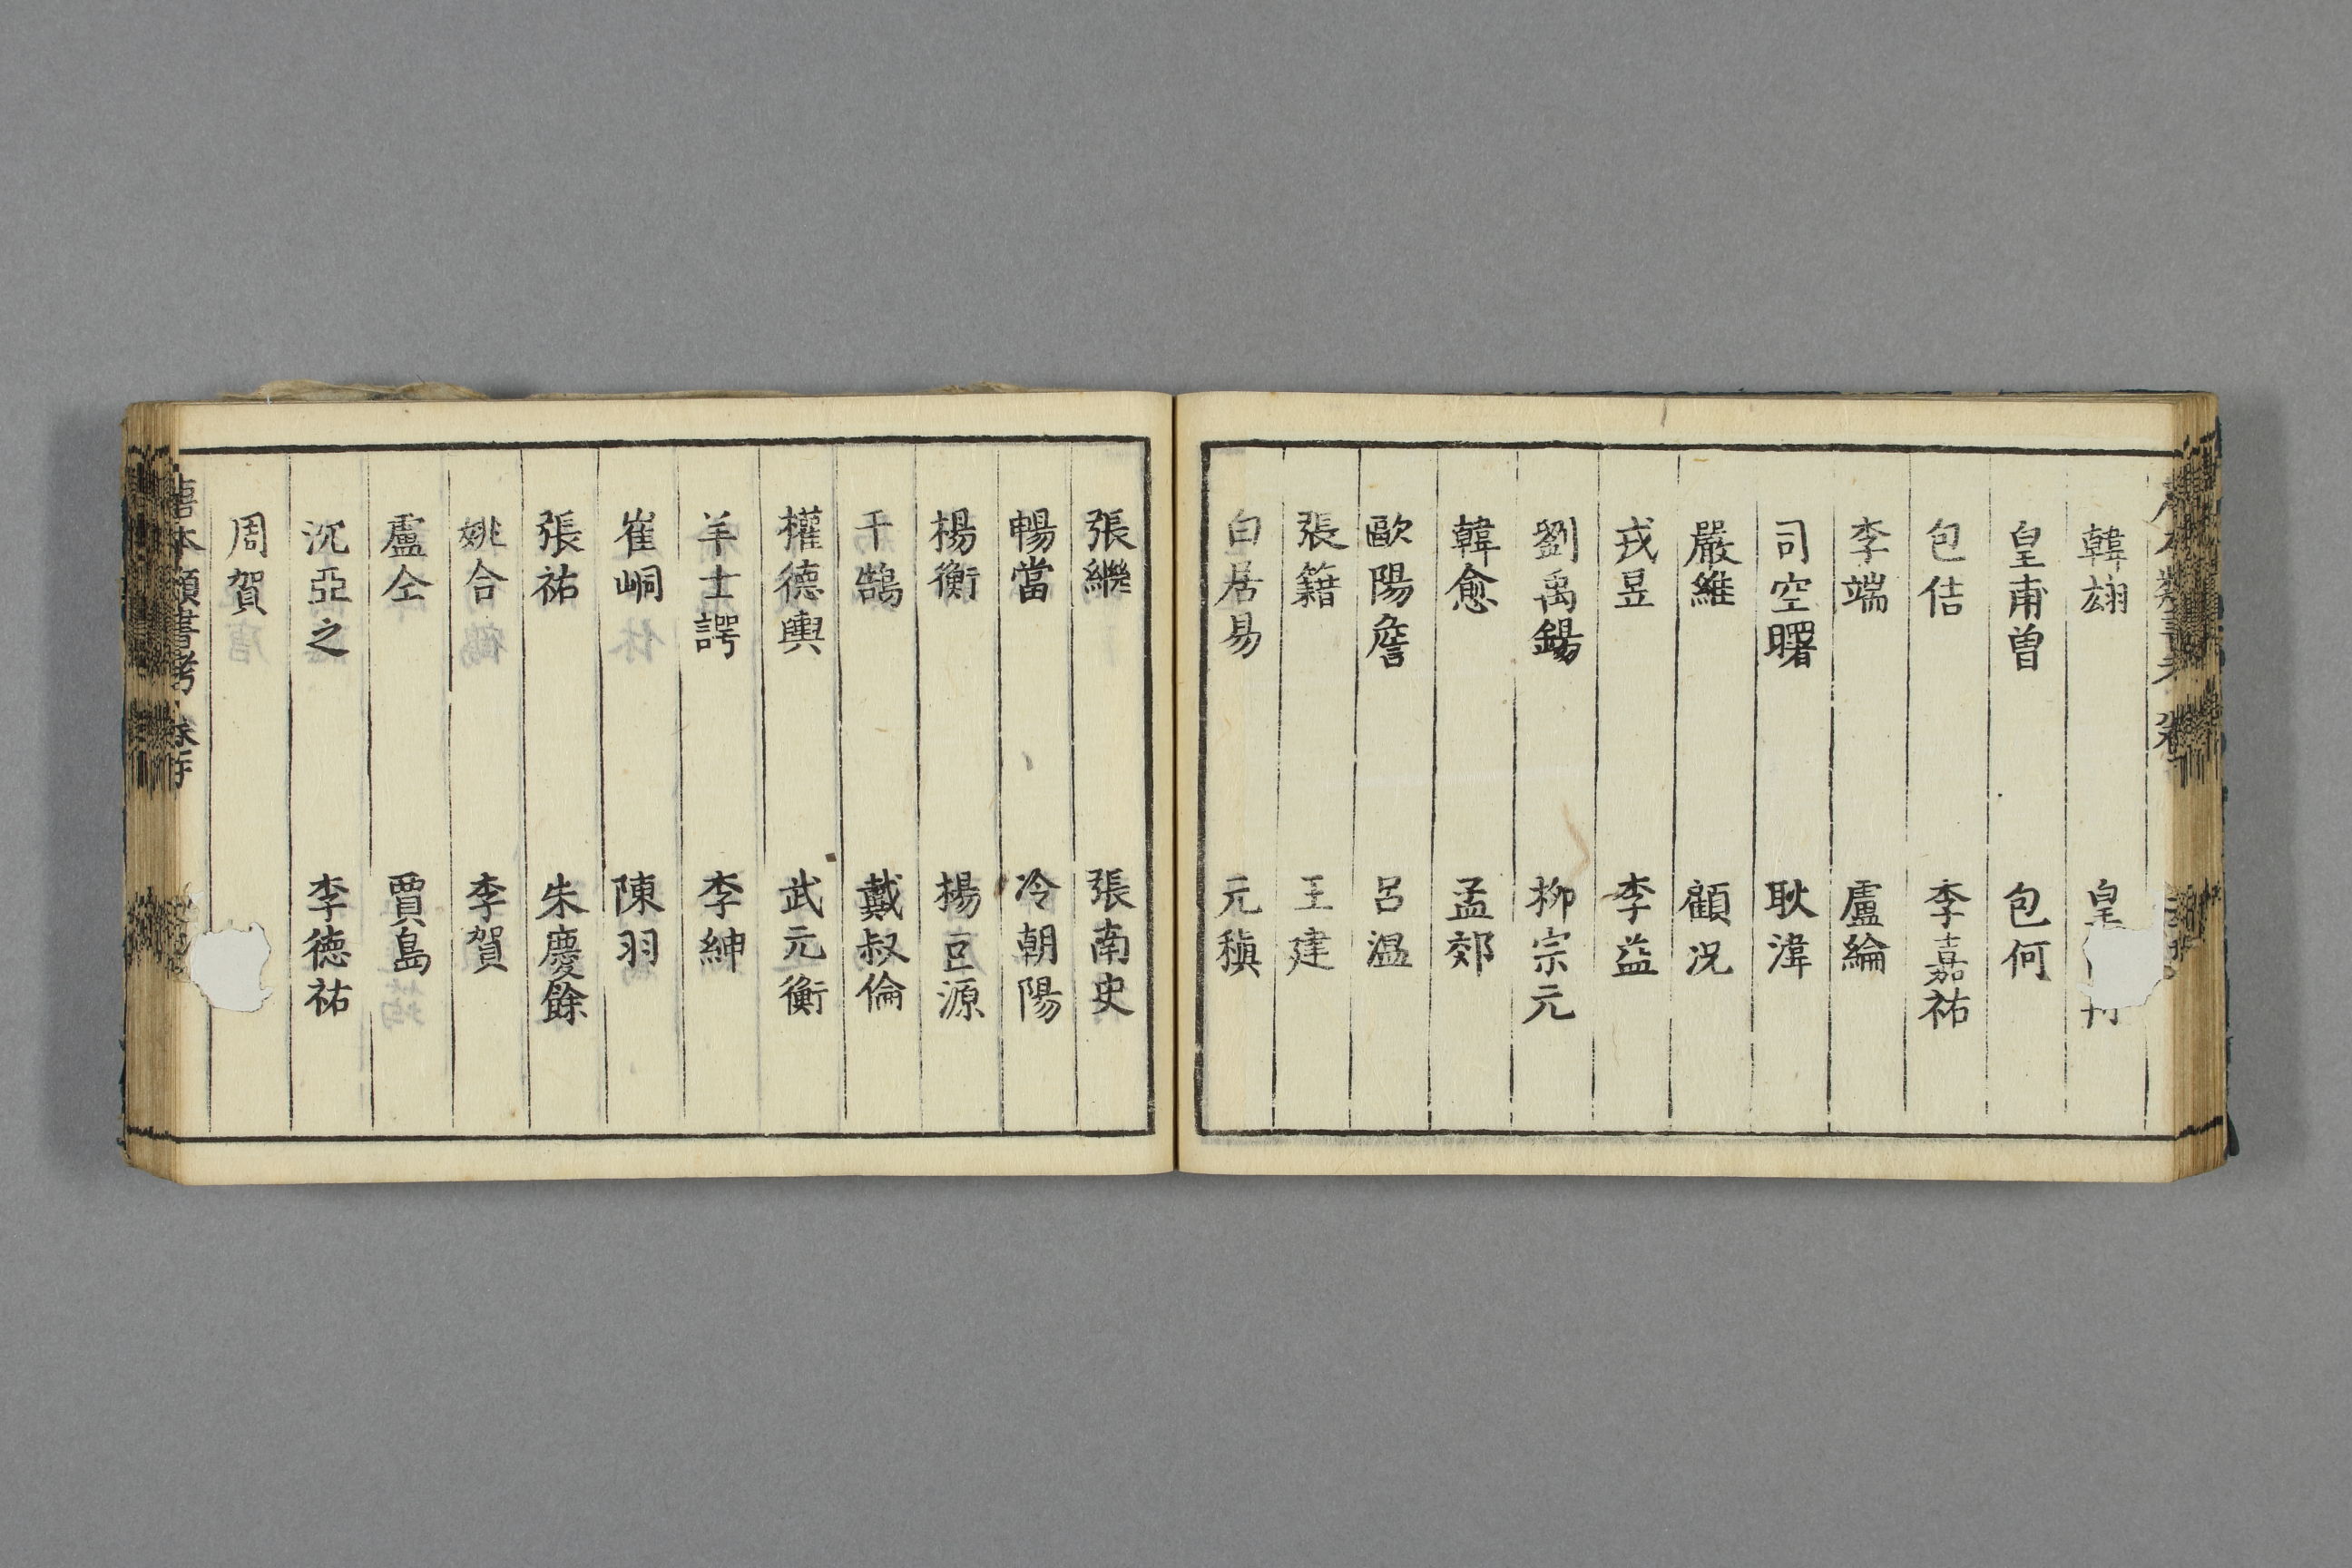 韓翃 皇
皇甫曽 包何
包佶 李嘉祐
李端 盧綸
司空曙 耿湋
嚴維 顧况
戎昱 李益
劉禹錫 柳宗元
韓愈 孟郊
歐陽詹 呂温
張籍 王建
白居易 元稹
張繼 張南史
暢當 冷朝陽
楊衡 楊巨源
于鵠 戴叔倫
權德輿 武元衡
羊士諤 李紳
崔峒 陳羽
張祐 朱慶餘
姚合 李賀
盧仝 賈島
沉亞之 李德祐
周賀